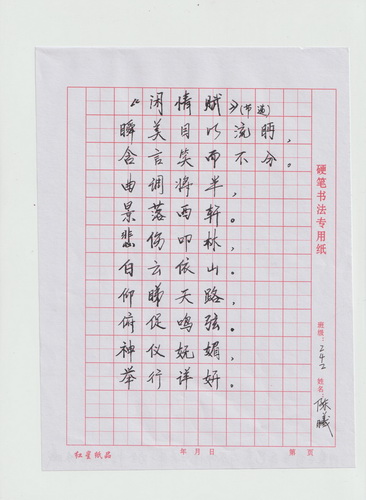 《闲情赋》(节选)
瞬美目以流眄，
含言笑而不分。
曲调将半，
景落西轩。
悲伤叩林，
白云依山。
仰睇天路，
俯促鸣弦。
神仪妩媚，
举行详妍。
硬笔书法专用纸
班级：242 姓名 陈曦
红星纸品 年月日 第 页